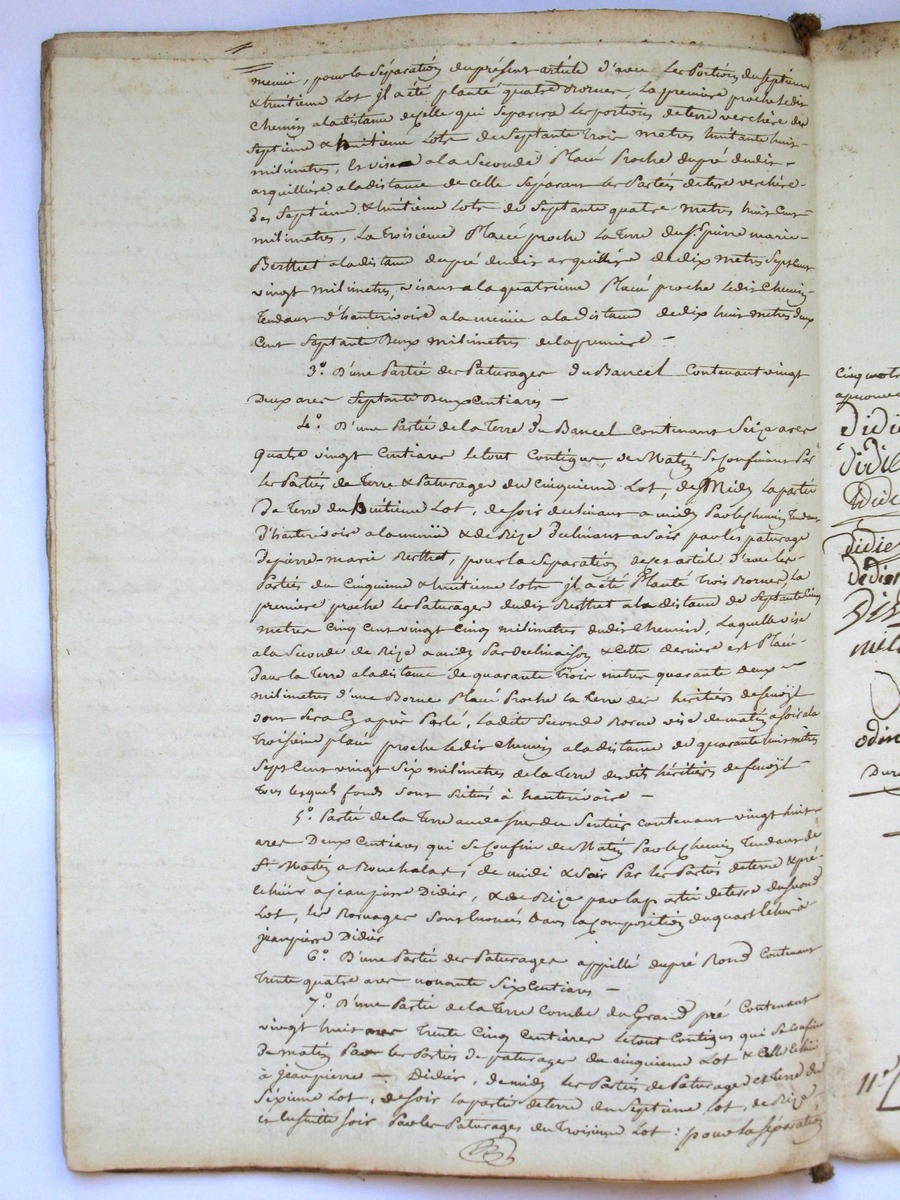 menüe, pour la Séparation du présent article d'avec les Portions du septième
& huitième Lot il a été planté quatre Bornes, la première proche ledit
Chemin a la distance de celle qui Separera les portions de terre verchère des
septieme & huitieme Lots de Septante trois metres huitante huit
milimetres, & vise a la Seconde Placée Proche du pré dudit
arquilliere a la distance de celle séparant les Parties de terre verchère
des Septieme & huitième Lots de Septante quatre metres huit Cent
milimetres, La troisième Placée proche la Terre du Sr pierre marie
Berthet a la distance du pré dudit arquillière de dix metres Sept Cent
vingt milimetres, visant a la quatrieme Placée proche ledit Chemin
Tendant d'hauterivoire a la menüe a la distance de dix huit metres deux
Cent Septante Deux milimetres de la premiere —
3.° D'une Partie des Paturages du Bancel Contenant vingt
Deux ares Septante Deux Centiares —
4.° D'une Partie de la Terre du Bancel Contenant Seize ares
quatre vingt Centiares le tout Contigue, de Matin Se Confinant Par
les Parties de Terre & Paturages du Cinquieme Lot, de Midy la partie
De Terre du huitieme Lot, de soir declinant a midy Par le chemin Tendant
D'hauterivoire a la menüe & de Bize Declinant a Soir par les paturages
De pierre-marie Berthet, pour la Séparation de cet article d'avec les
Parties du Cinquieme & huitieme Lots il a été Planté Trois Bornes, La
premiere proche les Paturages dudit Berthet a la distance de Septante Cinq
metres Cinq Cent vingt Cinq milimetres dudit Chemin, Laquelle vise
a la Seconde de Bize a midy Par declinaison & Cette derniere est Placée
Dans la Terre a la distance de quarante Trois metres quarante deux
milimetres d'une Borne Placée Proche la Terre des héritiers de feu
dont Sera Cy après Parlé, ladite Seconde Borne vise de matin a soir a la
Troisieme placée proche ledit Chemin a la distance de quarante huit mètres
Sept Cent vingt Six milimetres de la Terre desdits héritiers de feu
Tous lesquels fonds Sont Situés à hauterivoire —
5.° Partie de la Terre au dessus du Sentier Contenant vingt huit
ares Deux Centiares qui Se Confine de Matin Par le Chemin Tendant de
St. Martin a Rochalar, de midi & Soir Par les Parties de terre & pré
échüs a jean pierre Didier, & de Bize par la partie de terre du Second
Lot, les Bornages Sont énoncés dans la Composition du quart échu à
jean pierre Didier
6.° D'une Partie des Paturages appellé du pré Rond Contenant
Trente quatre ares nonante Six Centiares —
7.° D'une Partie de la Terre Combe du Grand pré Contenant
vingt huit ares Trente Cinq Centiares le tout Contigus qui Se Confine
De matin Par les Parties de paturages du Cinquieme Lot & Celle échüe
à jean pierre — Didier, de midy les Parties de Paturages et Terre du
Sixieme Lot, de Soir la partie de terre du Septieme Lot, de Bize
et ensuitte soir Par les Paturages du Troisieme Lot : pour la séparation